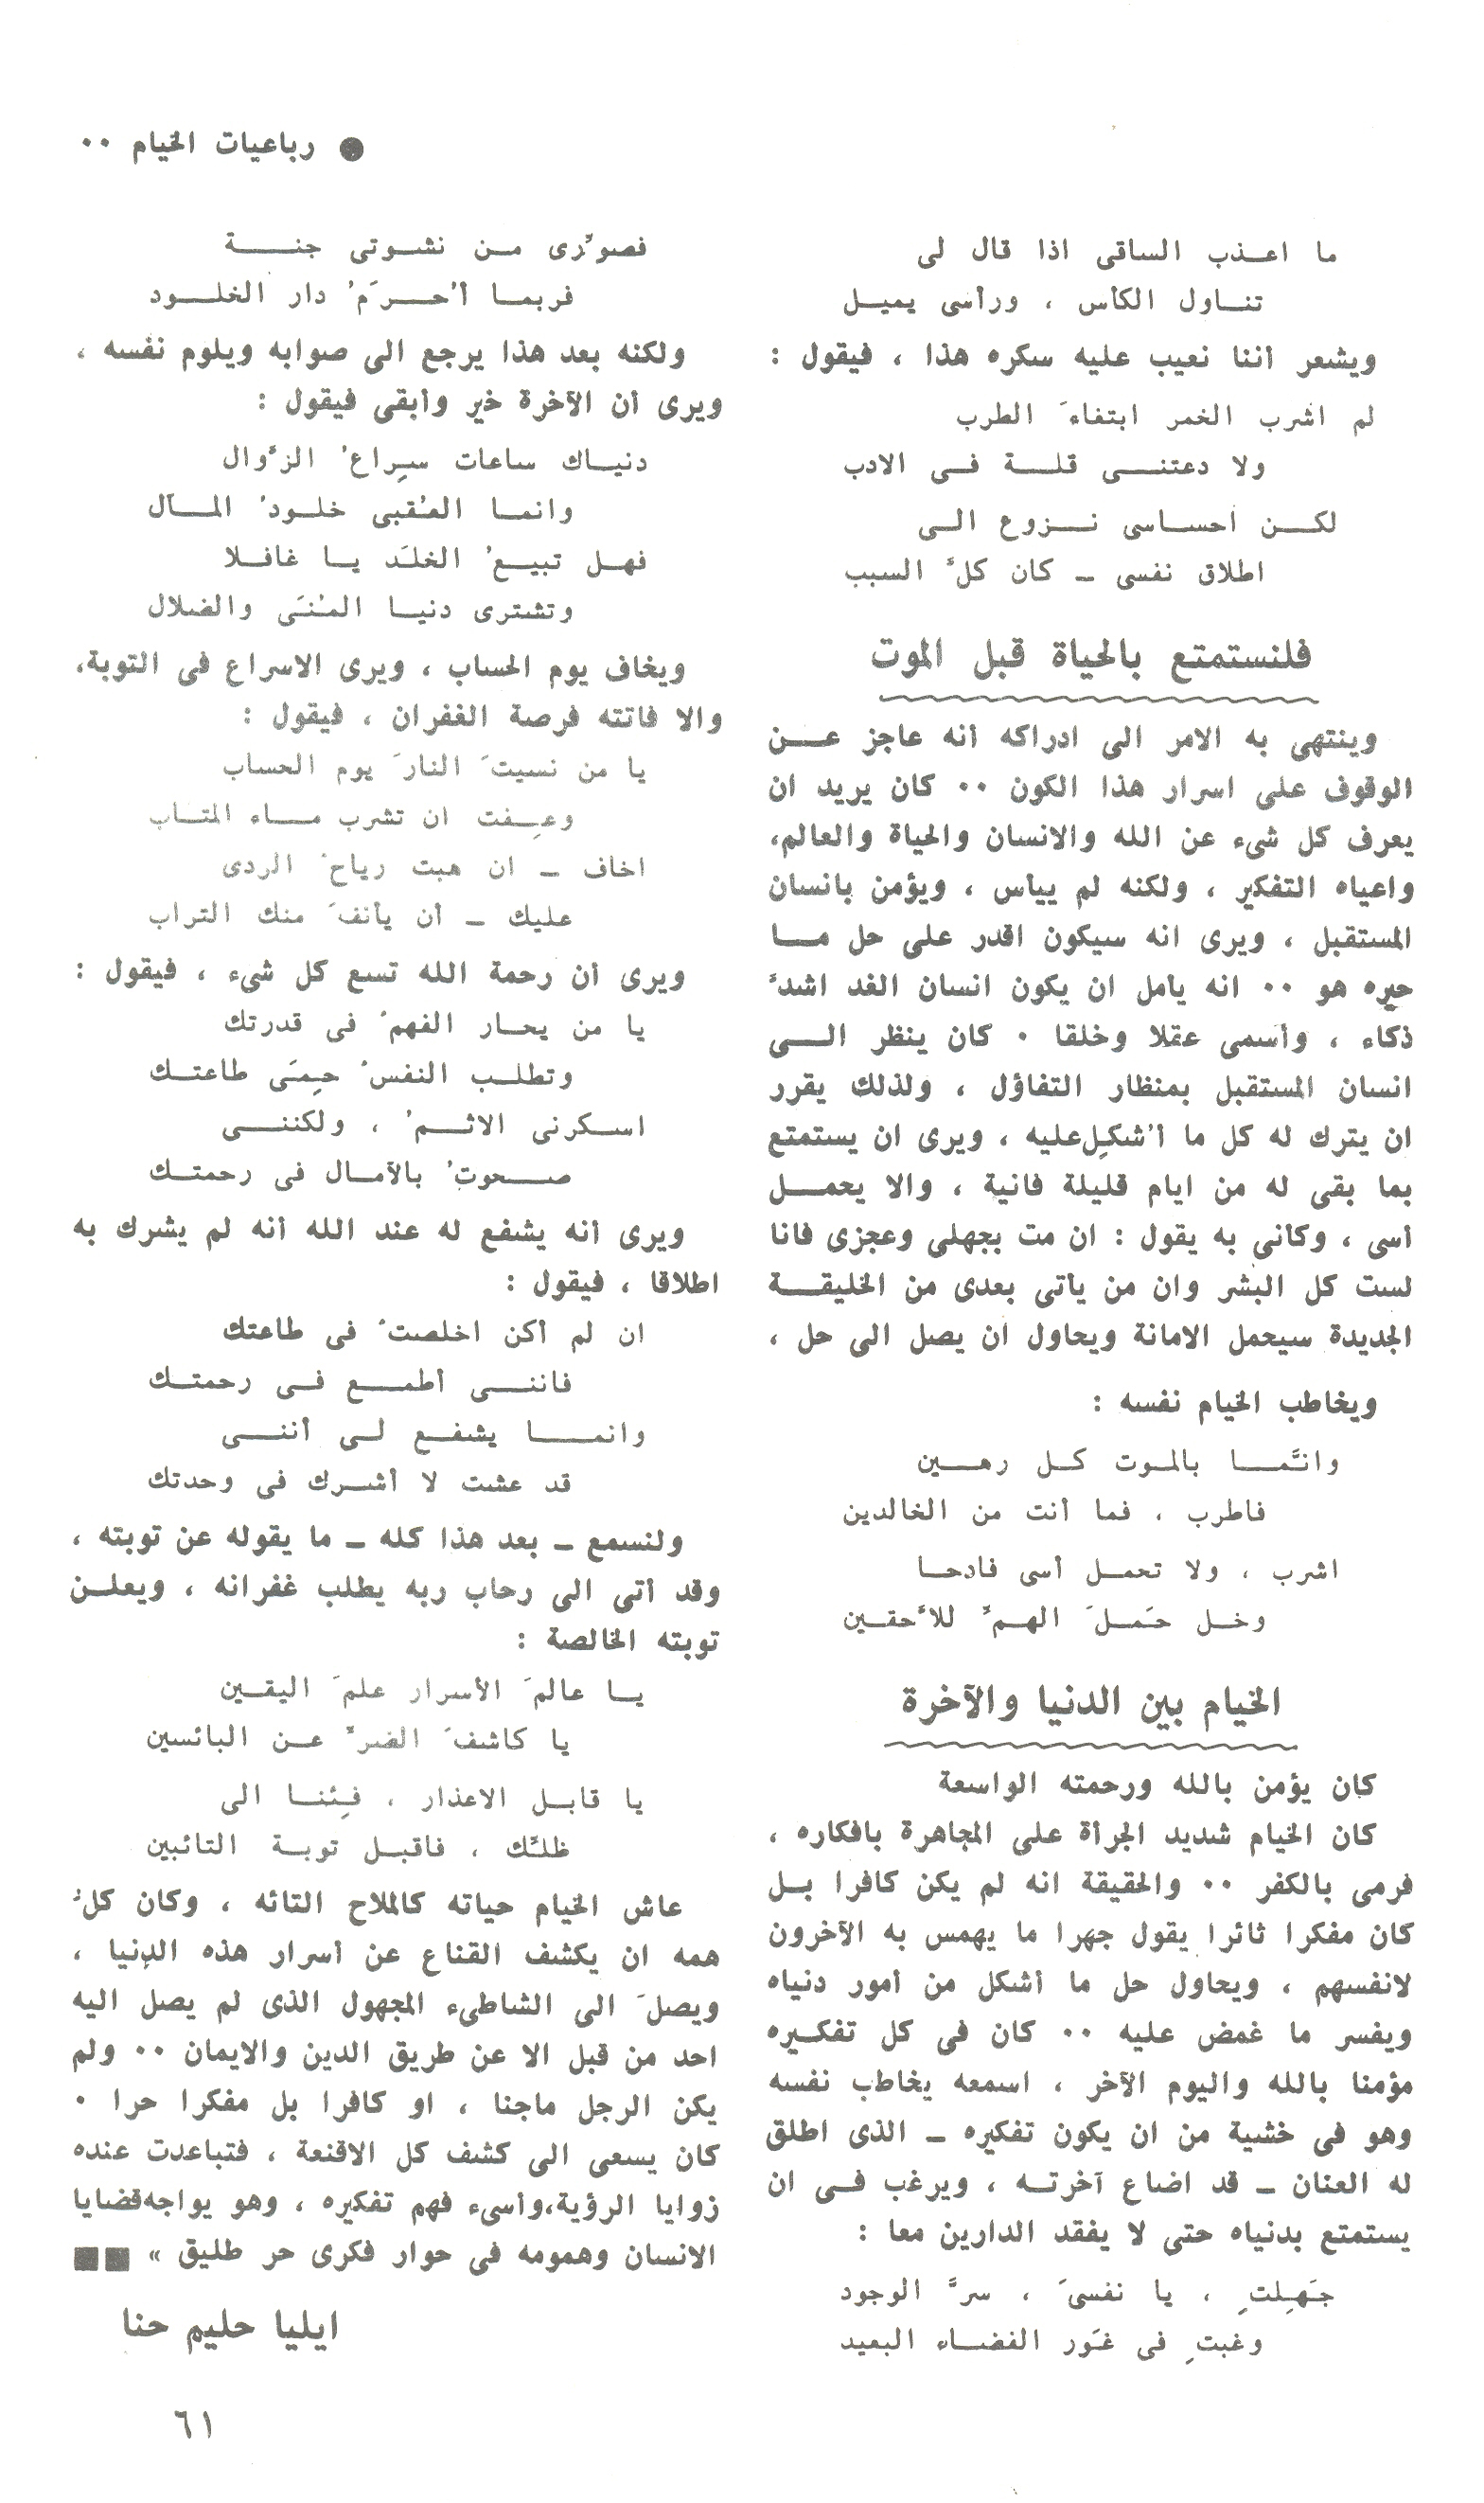 ● رباعيات الخيام ٠٠
ما اعـذب الساقى اذا قال لى
تنـاول الكأس ، ورأسى يميـل
ويشعر أننا نعيب عليه سكره هذا ، فيقول :
لم اشرب الخمر ابتغاءَ الطرب
ولا دعتنـى قلـة فـى الادب
لكـن احسـاسى نـزوع الـى
اطلاق نفسى ـ كان كلَّ السبب
فلنستمتع بالحياة قبل الموت
وينتهى به الامر الى ادراكه أنه عاجز عـن
الوقوف على اسرار هذا الكون ٠٠ كان يريد ان
يعرف كل شىء عن الله والانسان والحياة والعالم،
واعياه التفكير ، ولكنه لم ييأس ، ويؤمن بانسان
المستقبل ، ويرى انه سيكون اقدر على حل مـا
حيره هو ٠٠ انه يأمل ان يكون انسان الغد اشدَّ
ذكاء ، وأسمى عقلا وخلقا ٠ كان ينظر الـى
انسان المستقبل بمنظار التفاؤل ، ولذلك يقرر
ان يترك له كل ما أُشكِل عليه ، ويرى ان يستمتع
بما بقى له من ايام قليلة فانية ، والا يحمـل
أسى ، وكأنى به يقول : ان مت بجهلى وعجزى فانا
لست كل البشر وان من يأتى بعدى من الخليقـة
الجديدة سيحمل الامانة ويحاول ان يصل الى حل ،
ويخاطب الخيام نفسه :
وانَّمـا بالموت كـل رهـين
فاطرب ، فما أنت من الخالدين
اشرب ، ولا تحمـل أسى فادحـا
وخـل حَمـلَ الهـمِّ للاَّحقـين
الخيام بين الدنيا والآخرة
كان يؤمن بالله ورحمته الواسعة
كان الخيام شديد الجرأة على المجاهرة بافكاره ،
فرمى بالكفر ٠٠ والحقيقة انه لم يكن كافرا بـل
كان مفكرا ثائرا يقول جهرا ما يهمس به الآخرون
لانفسهم ، ويحاول حل ما أشكل من أمور دنياه
ويفسر ما غمض عليه ٠٠ كان فى كل تفكـيره
مؤمنا بالله واليوم الآخر ، اسمعه يخاطب نفسه
وهو فى خشية من ان يكون تفكيره ـ الذى اطلق
له العنان ـ قد اضاع آخرتـه ، ويرغب فـى ان
يستمتع بدنياه حتى لا يفقد الدارين معا :
جَهِلتِ ، يا نفسىَ ، سرَّ الوجود
وغبتِ فى غَور الفضـاء البعيد
فصوِّرى مـن نشـوتى جنـة
فربمـا أُحـرَمُ دار الخلـود
ولكنه بعد هذا يرجع الى صوابه ويلوم نفسه ،
ويرى أن الآخرة خير وأبقى فيقول :
دنيـاك ساعات سِراعُ الزَّوال
وانمـا العُقبى خلـودُ المـآل
فهـل تبيـعُ الخلَد يـا غافـلا
وتشترى دنيـا المُنَى والضلال
ويخاف يوم الحساب ، ويرى الاسراع فى التوبة،
والا فاتته فرصة الغفران ، فيقول :
يا من نسيتَ النارَ يوم الحساب
وعِـفت ان تشرب مـاء المتـاب
اخاف ـ ان هبت رياحُ الردى
عليك ـ أن يأنفَ منك التراب
ويرى أن رحمة الله تسع كل شىء ، فيقول :
يا من يحـار الفهمُ فى قدرتك
وتطلـب النفسُ حِمَى طاعتـك
اسـكرنى الاثـمُ ، ولكننـى
صـحوتُ بالآمـال فى رحمتـك
ويرى أنه يشفع له عند الله أنه لم يشرك به
اطلاقا ، فيقول :
ان لم أكن اخلصتُ فى طاعتك
فاننـى أطمـع فـى رحمتـك
وانمـا يشفـع لـى أننـى
قد عشت لا أشـرك فى وحدتك
ولنسمع ـ بعد هذا كله ـ ما يقوله عن توبته ،
وقد أتى الى رحاب ربه يطلب غفرانه ، ويعلـن
توبته الخالصة :
يـا عالمَ الأسرار علمَ اليقـين
يا كاشفَ الضرِّ عـن البائسين
يا قابـل الاعذار ، فِئنـا الى
ظلِّك ، فاقبـل توبـة التائبين
عاش الخيام حياته كالملاح التائه ، وكان كلُّ
همه ان يكشف القناع عن أسرار هذه الدنيا ،
ويصلَ الى الشاطىء المجهول الذى لم يصل اليه
احد من قبل الا عن طريق الدين والايمان ٠٠ ولم
يكن الرجل ماجنا ، او كافرا بل مفكرا حرا ٠
كان يسعى الى كشف كل الاقنعة ، فتباعدت عنده
زوايا الرؤية،وأسىء فهم تفكيره ، وهو يواجه قضايا
الانسان وهمومه فى حوار فكرى حر طليق » ■■
ايليا حليم حنا
٦١